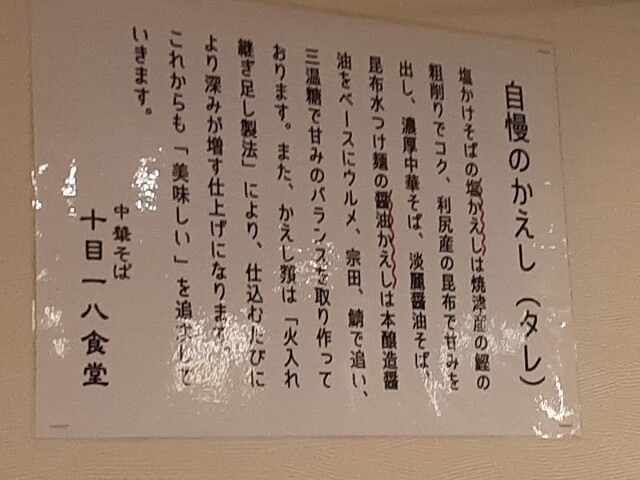 自慢のかえし（タレ）
塩かけそばの塩かえしは焼津産の鰹の
粗削りでコク、利尻産の昆布で甘みを
出し、濃厚中華そば、淡麗醤油そば、
昆布水つけ麺の醤油かえしは本醸造醤
油をベースにウルメ、宗田、鯖で追い、
三温糖で甘みのバランスを取り作って
おります。また、かえし類は「火入れ
継ぎ足し製法」により、仕込むたびに
より深みが増す仕上げになります。
これからも「美味しい」を追求して
いきます。
中華そば
十目一八食堂